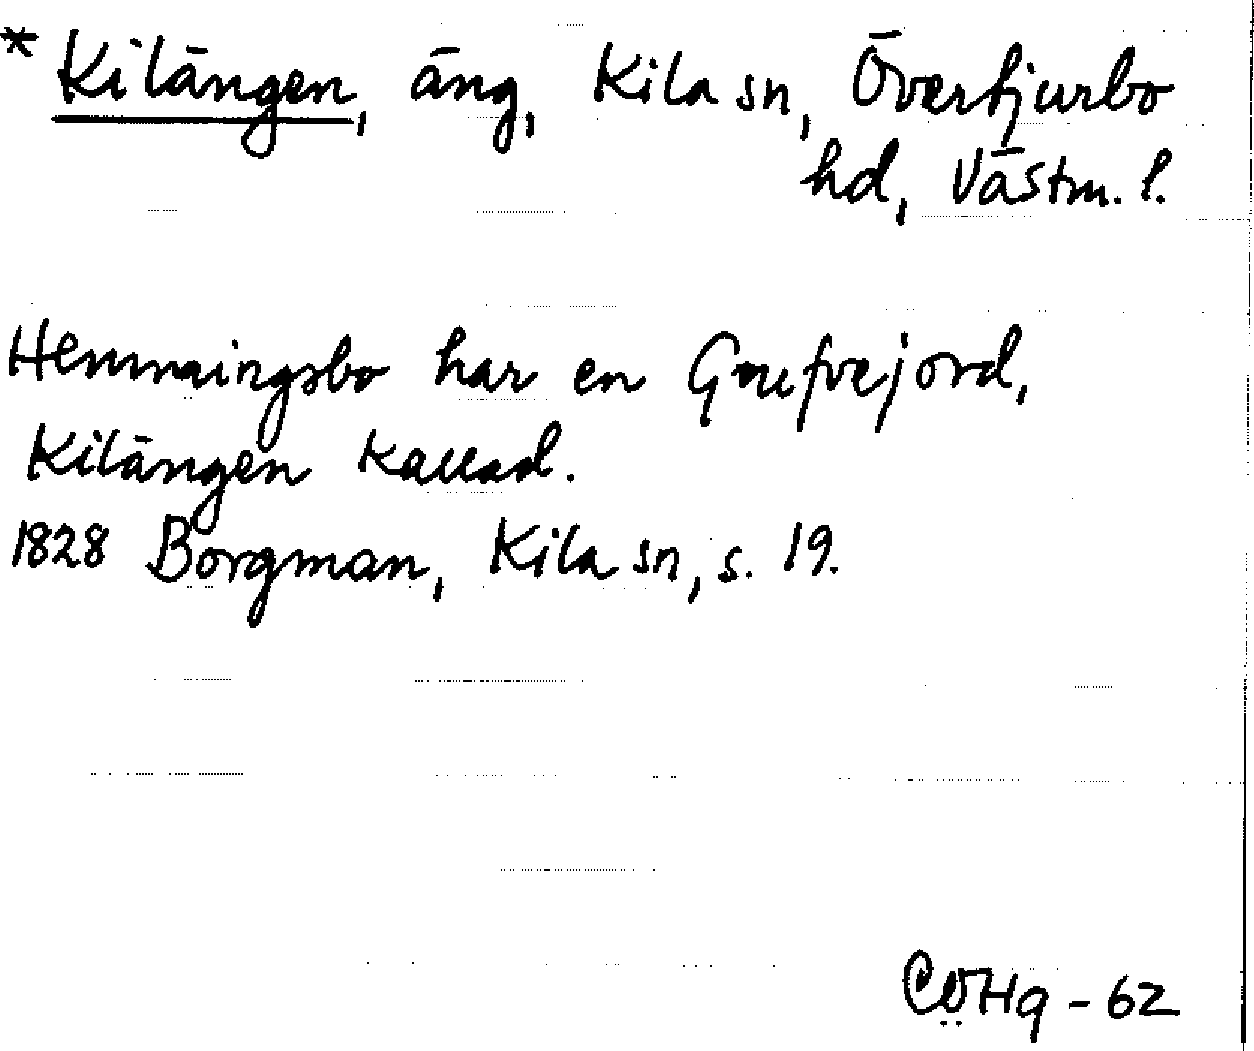 * Kilängen, äng, Kila sn, Övertjurbo
hd, Västm. l.
Hemmingsbo har en Grefvejord,
Kilängen kallad.
1828 Borgman, Kila sn, s. 19.
CÖHg - 62